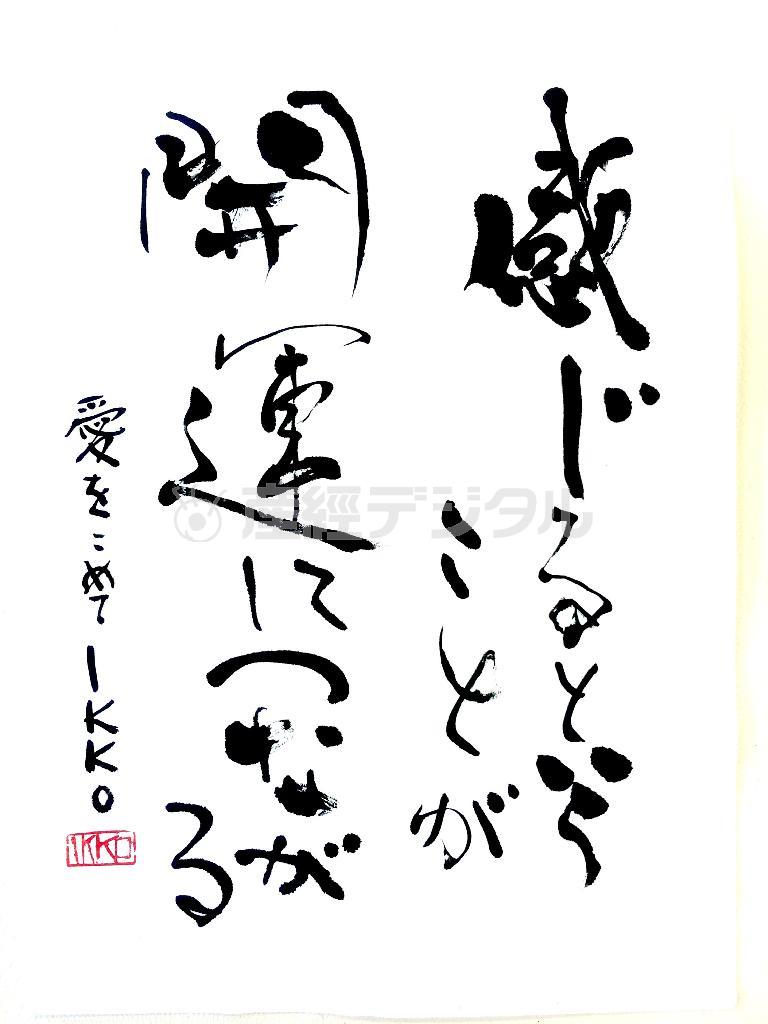 感じるという
ことが
開運につなが
る
愛をこめて IKKO
IKKO
産經デジタル